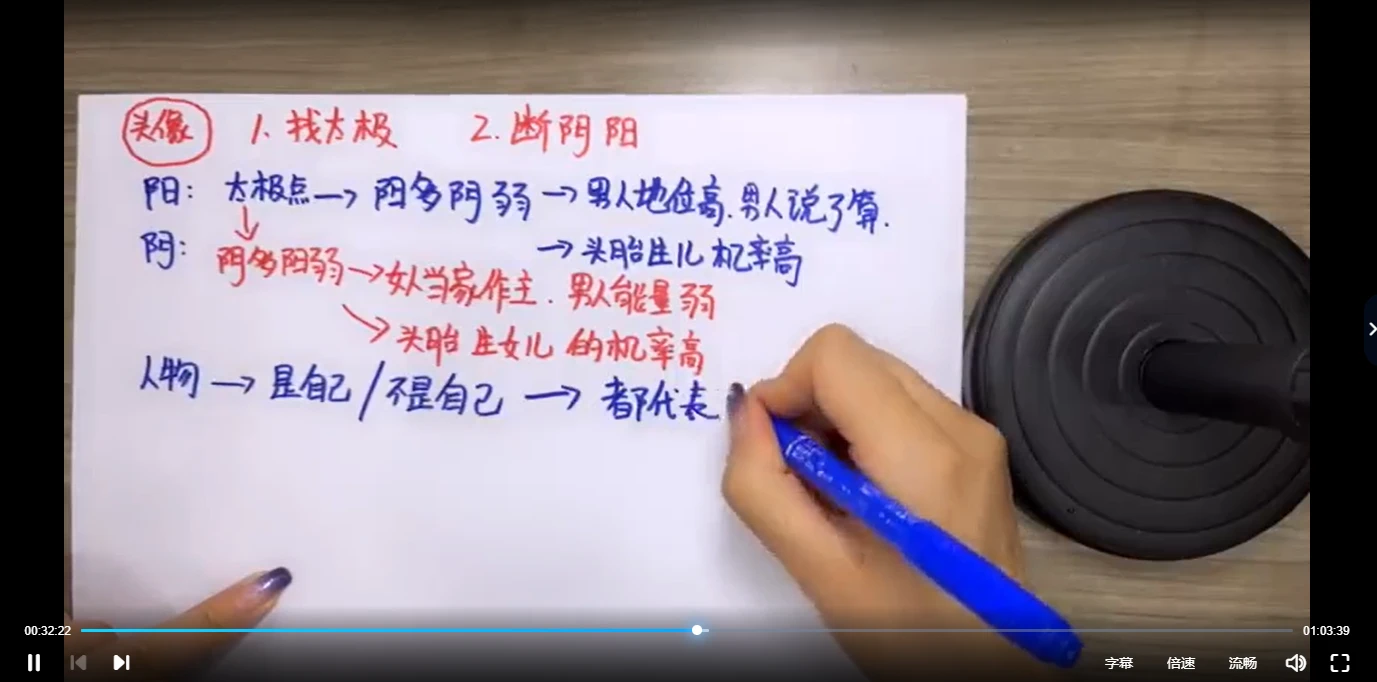 头像 1. 找太极 2. 断阴阳
阳: 太极点→阳多阴弱→男人地位高.男人说了算.
→头胎生儿机率高
阴: 阴多阳弱→女人当家作主.男人能量弱
→头胎生女儿的机率高
人物→是自己/不是自己→都代表
00:32:22
01:03:39
字幕 倍速 流畅